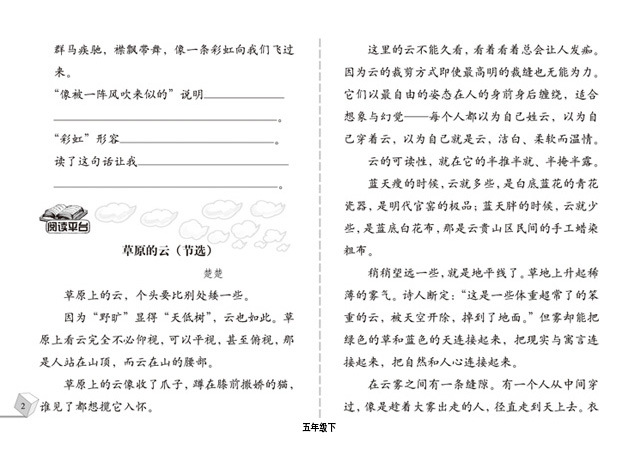 群马疾驰，襟飘带舞，像一条彩虹向我们飞过
来。
“像被一阵风吹来似的”说明
。
“彩虹”形容
。
读了这句话让我
。
阅读平台
草原的云（节选）
楚楚
草原上的云，个头要比别处矮一些。
因为“野旷”显得“天低树”，云也如此。草
原上看云完全不必仰视，可以平视，甚至俯视，那
是人站在山顶，而云在山的腰部。
草原上的云像收了爪子，蹲在膝前撒娇的猫，
谁见了都想揽它入怀。
2
这里的云不能久看，看着看着总会让人发痴。
因为云的裁剪方式即使最高明的裁缝也无能为力。
它们以最自由的姿态在人的身前身后缠绕，适合
想象与幻觉——每个人都以为自己姓云，以为自
己穿着云，以为自己就是云，洁白、柔软而温情。
云的可读性，就在它的半推半就、半掩半露。
蓝天瘦的时候，云就多些，是白底蓝花的青花
瓷器，是明代官窑的极品；蓝天胖的时候，云就少
些，是蓝底白花布，那是云贵山区民间的手工蜡染
粗布。
稍稍望远一些，就是地平线了。草地上升起稀
薄的雾气。诗人断定：“这是一些体重超常了的笨
重的云，被天空开除，掉到了地面。”但雾却能把
绿色的草和蓝色的天连接起来，把现实与寓言连
接起来，把自然和人心连接起来。
在云雾之间有一条缝隙。有一个人从中间穿
过，像是趁着大雾出走的人，径直走到天上去。衣
五年级下